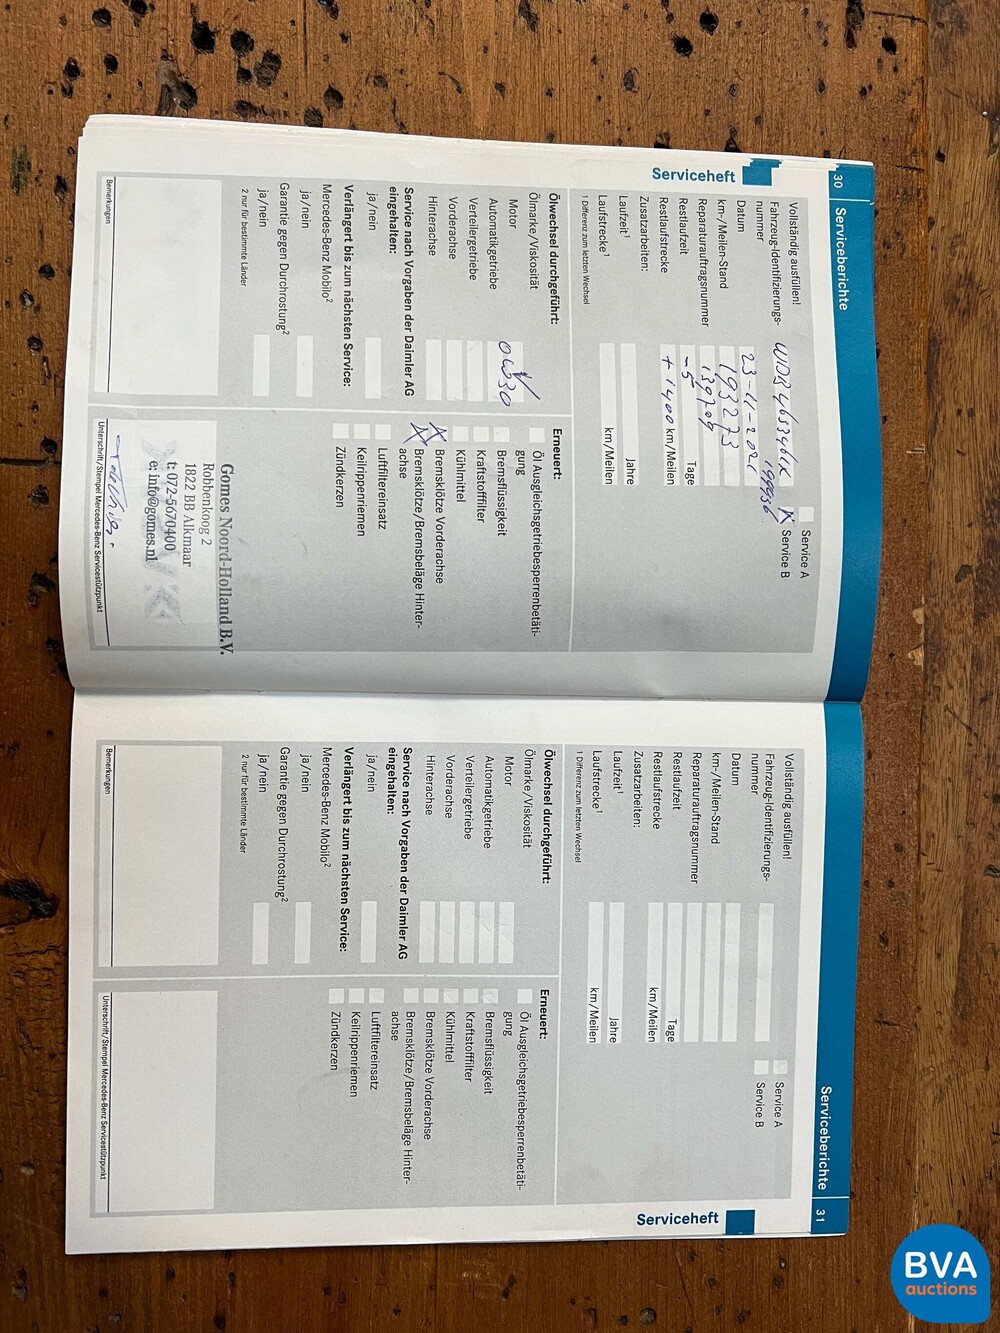 30 Serviceberichte
Serviceheft
Vollständig ausfüllen!
Fahrzeug-Identifizierungs-
nummer
Service A
X Service B
Datum 23-11-202
km-/Meilen-Stand 193273
Reparaturauftragsnummer 139709
Restlaufzeit -5 Tage
Restlaufstrecke + 1400 km/Meilen
Zusatzarbeiten:
Laufzeit¹ Jahre
Laufstrecke¹ km/Meilen
1 Differenz zum letzten Wechsel
Ölwechsel durchgeführt:
Ölmarke/Viskosität
Motor
Automatikgetriebe
Verteilergetriebe
Vorderachse
Hinterachse
Service nach Vorgaben der Daimler AG
eingehalten:
ja/nein
Verlängert bis zum nächsten Service:
Mercedes-Benz Mobilo²
ja/nein
Garantie gegen Durchrostung²
ja/nein
2 nur für bestimmte Länder
Bemerkungen
Erneuert:
Öl Ausgleichsgetriebesperrenbetäti-
gung
Bremsflüssigkeit
Kraftstofffilter
Kühlmittel
X Bremsklötze Vorderachse
X Bremsklötze/Bremsbeläge Hinter-
achse
Luftfiltereinsatz
Keilrippenriemen
Zündkerzen
Gomes Noord-Holland B.V.
Robbenkoog 2
1822 BB Alkmaar
t: 072-5670400
e: info@gomes.nl
Unterschrift/Stempel Mercedes-Benz Servicestützpunkt
Serviceberichte 31
Serviceheft
Vollständig ausfüllen!
Fahrzeug-Identifizierungs-
nummer
Service A
Service B
Datum
km-/Meilen-Stand
Reparaturauftragsnummer
Restlaufzeit Tage
Restlaufstrecke km/Meilen
Zusatzarbeiten:
Laufzeit¹ Jahre
Laufstrecke¹ km/Meilen
1 Differenz zum letzten Wechsel
Ölwechsel durchgeführt:
Ölmarke/Viskosität
Motor
Automatikgetriebe
Verteilergetriebe
Vorderachse
Hinterachse
Service nach Vorgaben der Daimler AG
eingehalten:
ja/nein
Verlängert bis zum nächsten Service:
Mercedes-Benz Mobilo²
ja/nein
Garantie gegen Durchrostung²
ja/nein
2 nur für bestimmte Länder
Bemerkungen
Erneuert:
Öl Ausgleichsgetriebesperrenbetäti-
gung
Bremsflüssigkeit
Kraftstofffilter
Kühlmittel
Bremsklötze Vorderachse
Bremsklötze/Bremsbeläge Hinter-
achse
Luftfiltereinsatz
Keilrippenriemen
Zündkerzen
Unterschrift/Stempel Mercedes-Benz Servicestützpunkt
BVA
auctions